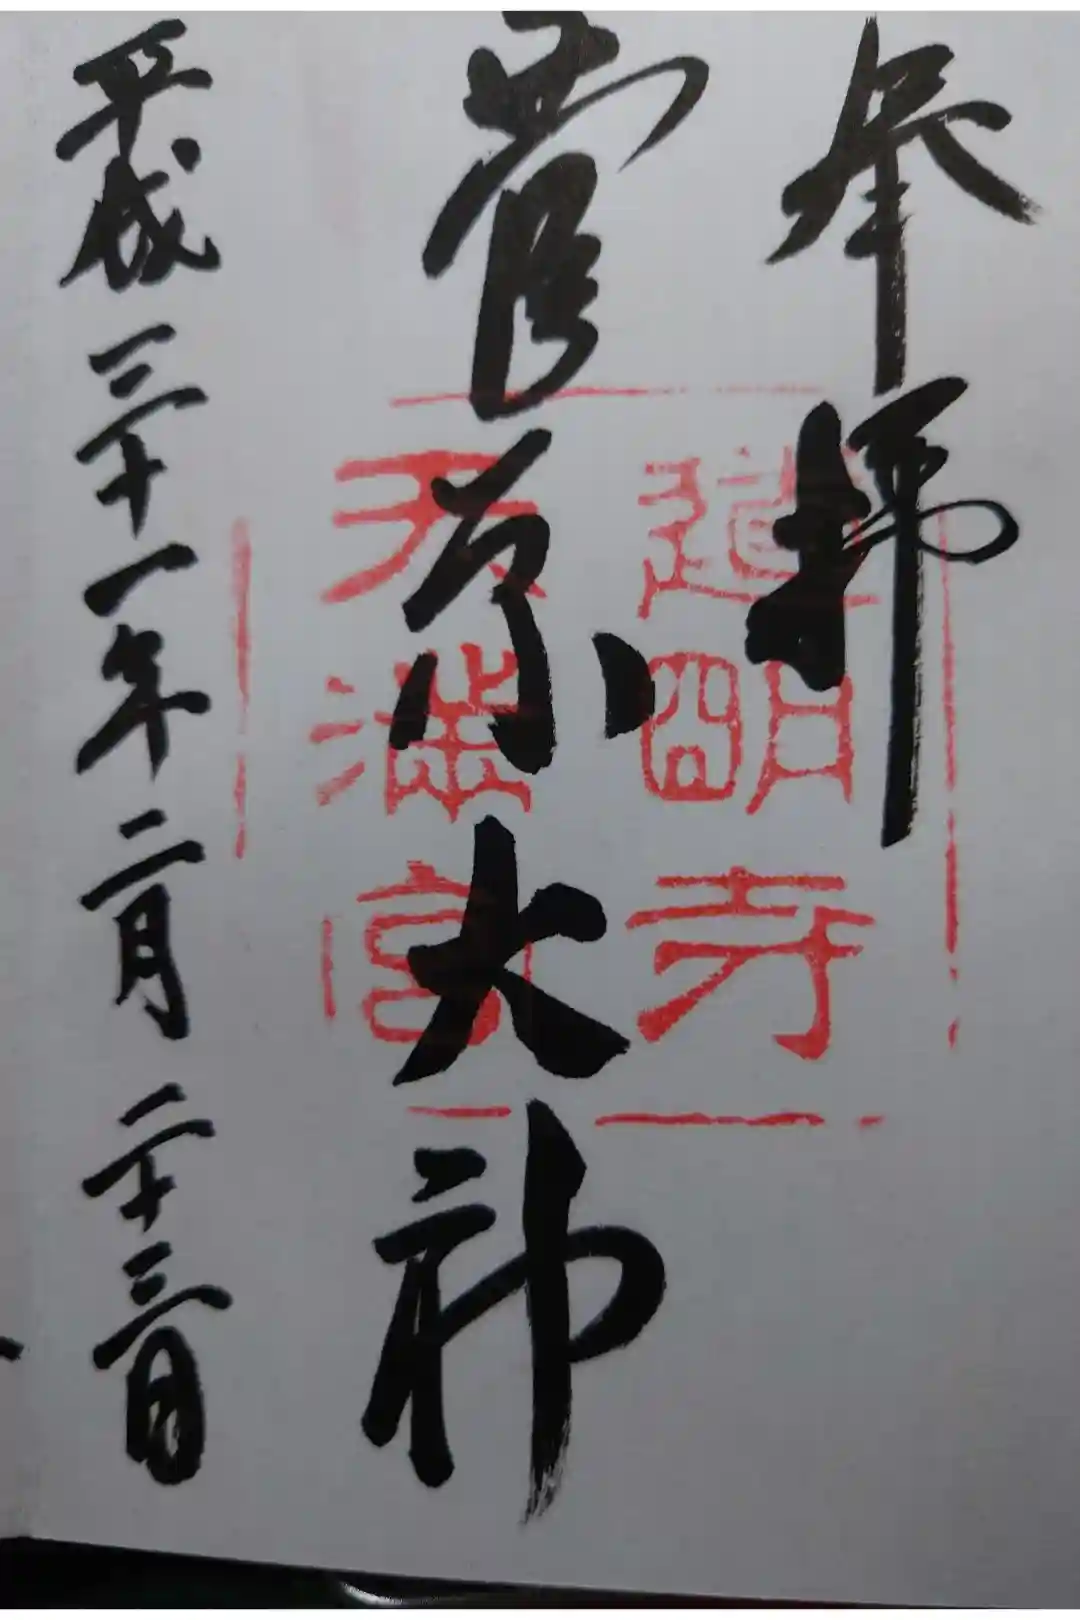 奉拝
菅原大神
平成三十一年二月二十三日
道明寺
天満宮